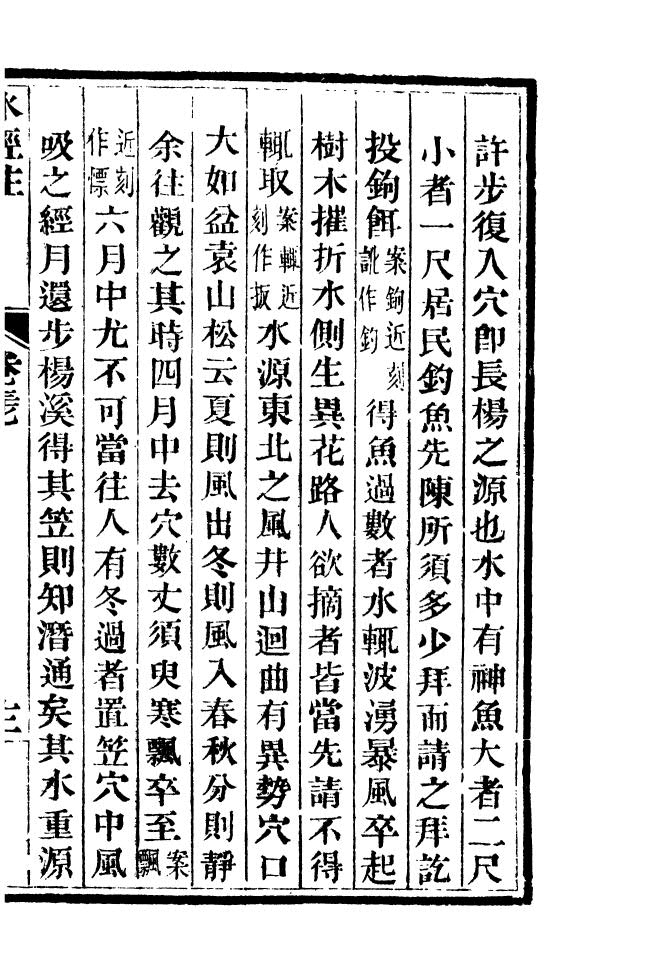 許步復入穴卽長楊之源也水中有神魚大者二尺
小者一尺居民釣魚先陳所須多少拜而請之拜訖
投鉤餌案鉤近刻訛作釣得魚過數者水輒波湧暴風卒起
樹木摧折水側生異花路人欲摘者皆當先請不得
輒取案輒近刻作扳水源東北之風井山迴曲有異勢穴口
大如盆袁山松云夏則風出冬則風入春秋分則靜
余往觀之其時四月中去穴數丈須臾寒飄卒至案飄
近刻作慓六月中尤不可當往人有冬過者置笠穴中風
吸之經月還步楊溪得其笠則知潛通矣其水重源
水經注 卷三十七 三